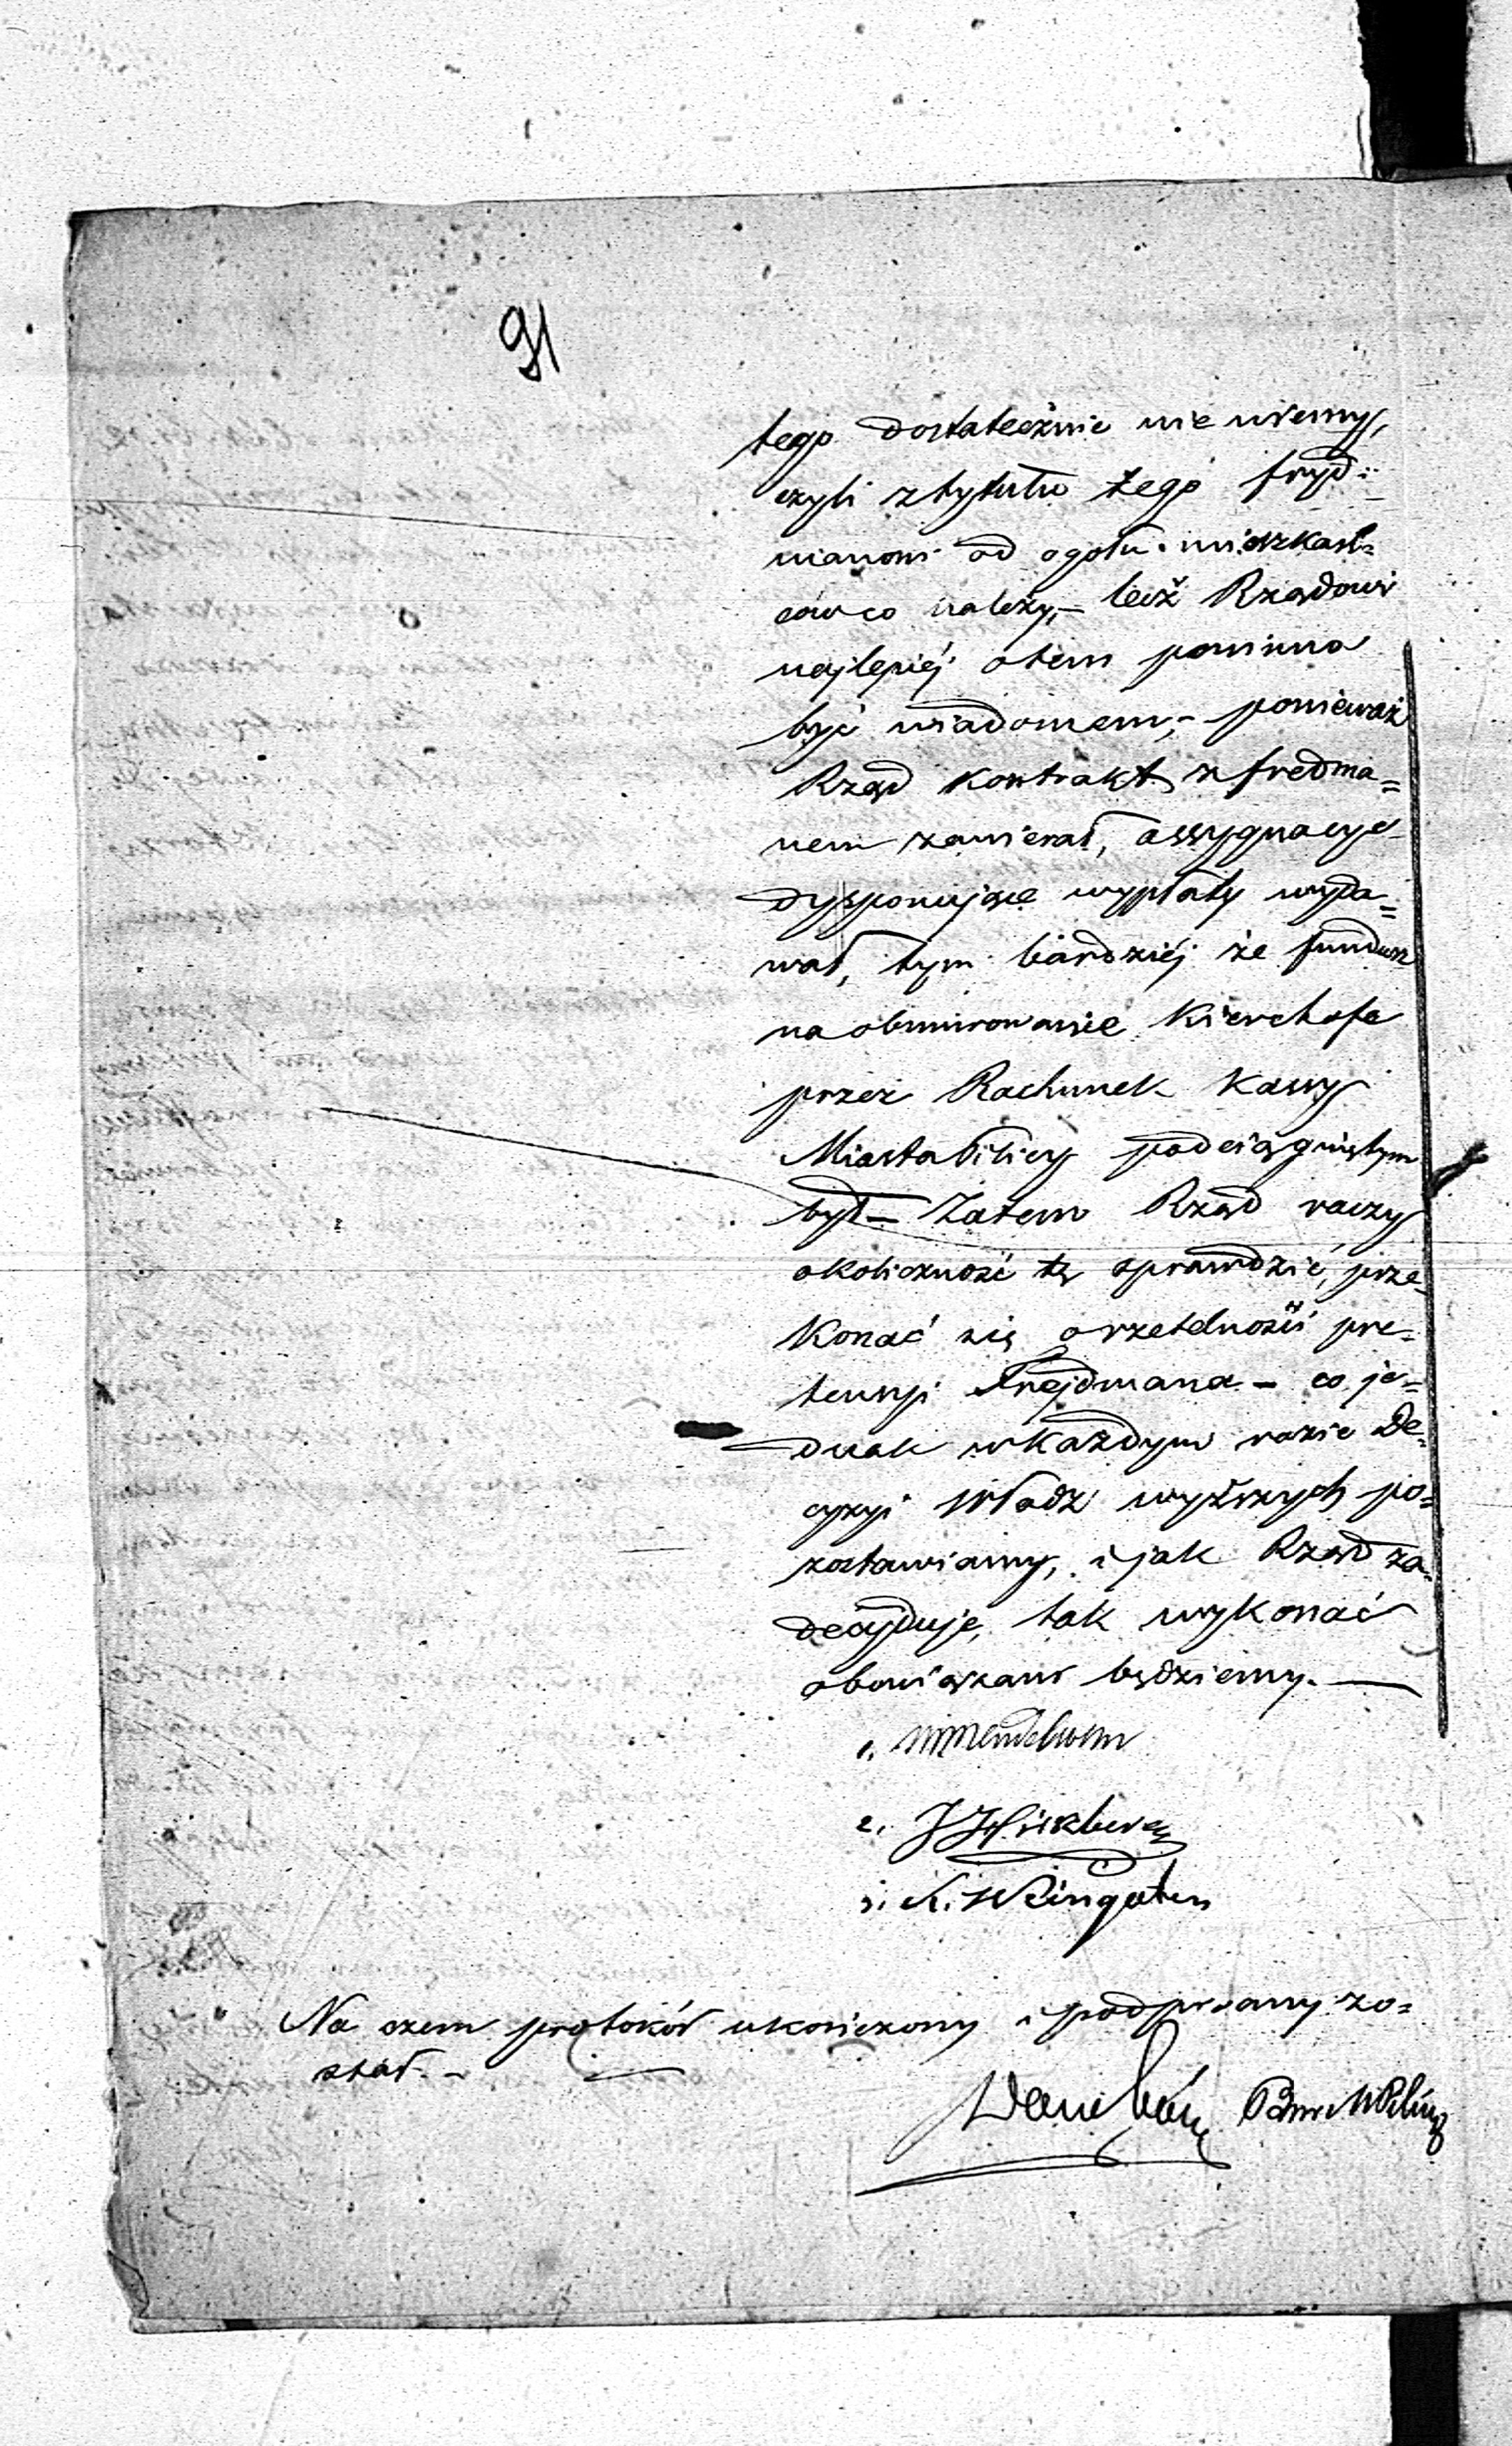 91
tego dostatecznie nie wiemy,
czyli z tytułu tego fryd=
manowi od ogołu mieszkań=
ców co należy,– lecz Rządowi
najlepiéj otem powinno
być wiadomem,– ponieważ
Rząd kontrakt z fredma=
nem zawierał, assygnacye
dysponujące wypłaty wyda=
wał, tym bardziéj że fundusz
na obmurowanie Kierchofa
przez Rachunek Kassy
Miasta Pilicy podciągniętym
był – Zatem Rząd raczy
okoliczność tę sprawdzić, prze=
konać się o rzetelności pre=
tensyi Frejdmana – co je=
dnak w każdym razie De=
cyzyi Władz wyższych po=
zostawiamy, i jak Rząd za=
decyduje, tak wykonać
obowiązani będziemy. —
1.
2.
3. K. Weingarten
Na czem protokół ukończony i podpisany zo=
stał. –